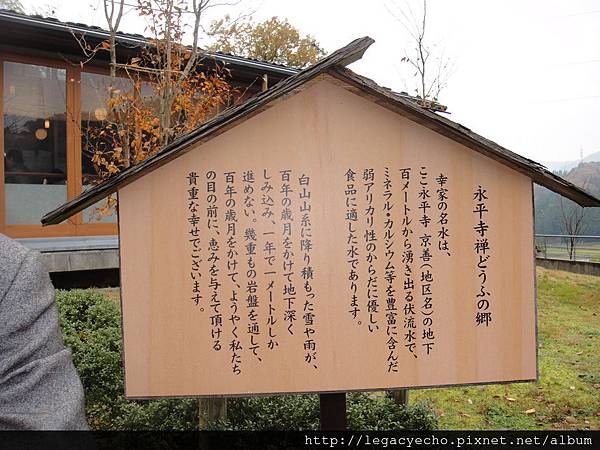 永平寺禅どうふの郷
幸家の名水は、
ここ永平寺 京善(地区名)の地下
百メートルから湧き出る伏流水で、
ミネラル・カルシウム等を豊富に含んだ
弱アリカリ性のからだに優しい
食品に適した水であります。
白山山系に降り積もった雪や雨が、
百年の歳月をかけて地下深く
しみ込み、一年で一メートルしか
進めない。幾重もの岩盤を通して、
百年の歳月をかけて、ようやく私たち
の目の前に、恵みを与えて頂ける
貴重な幸せでございます。
http://legacyecho.pixnet.net/album